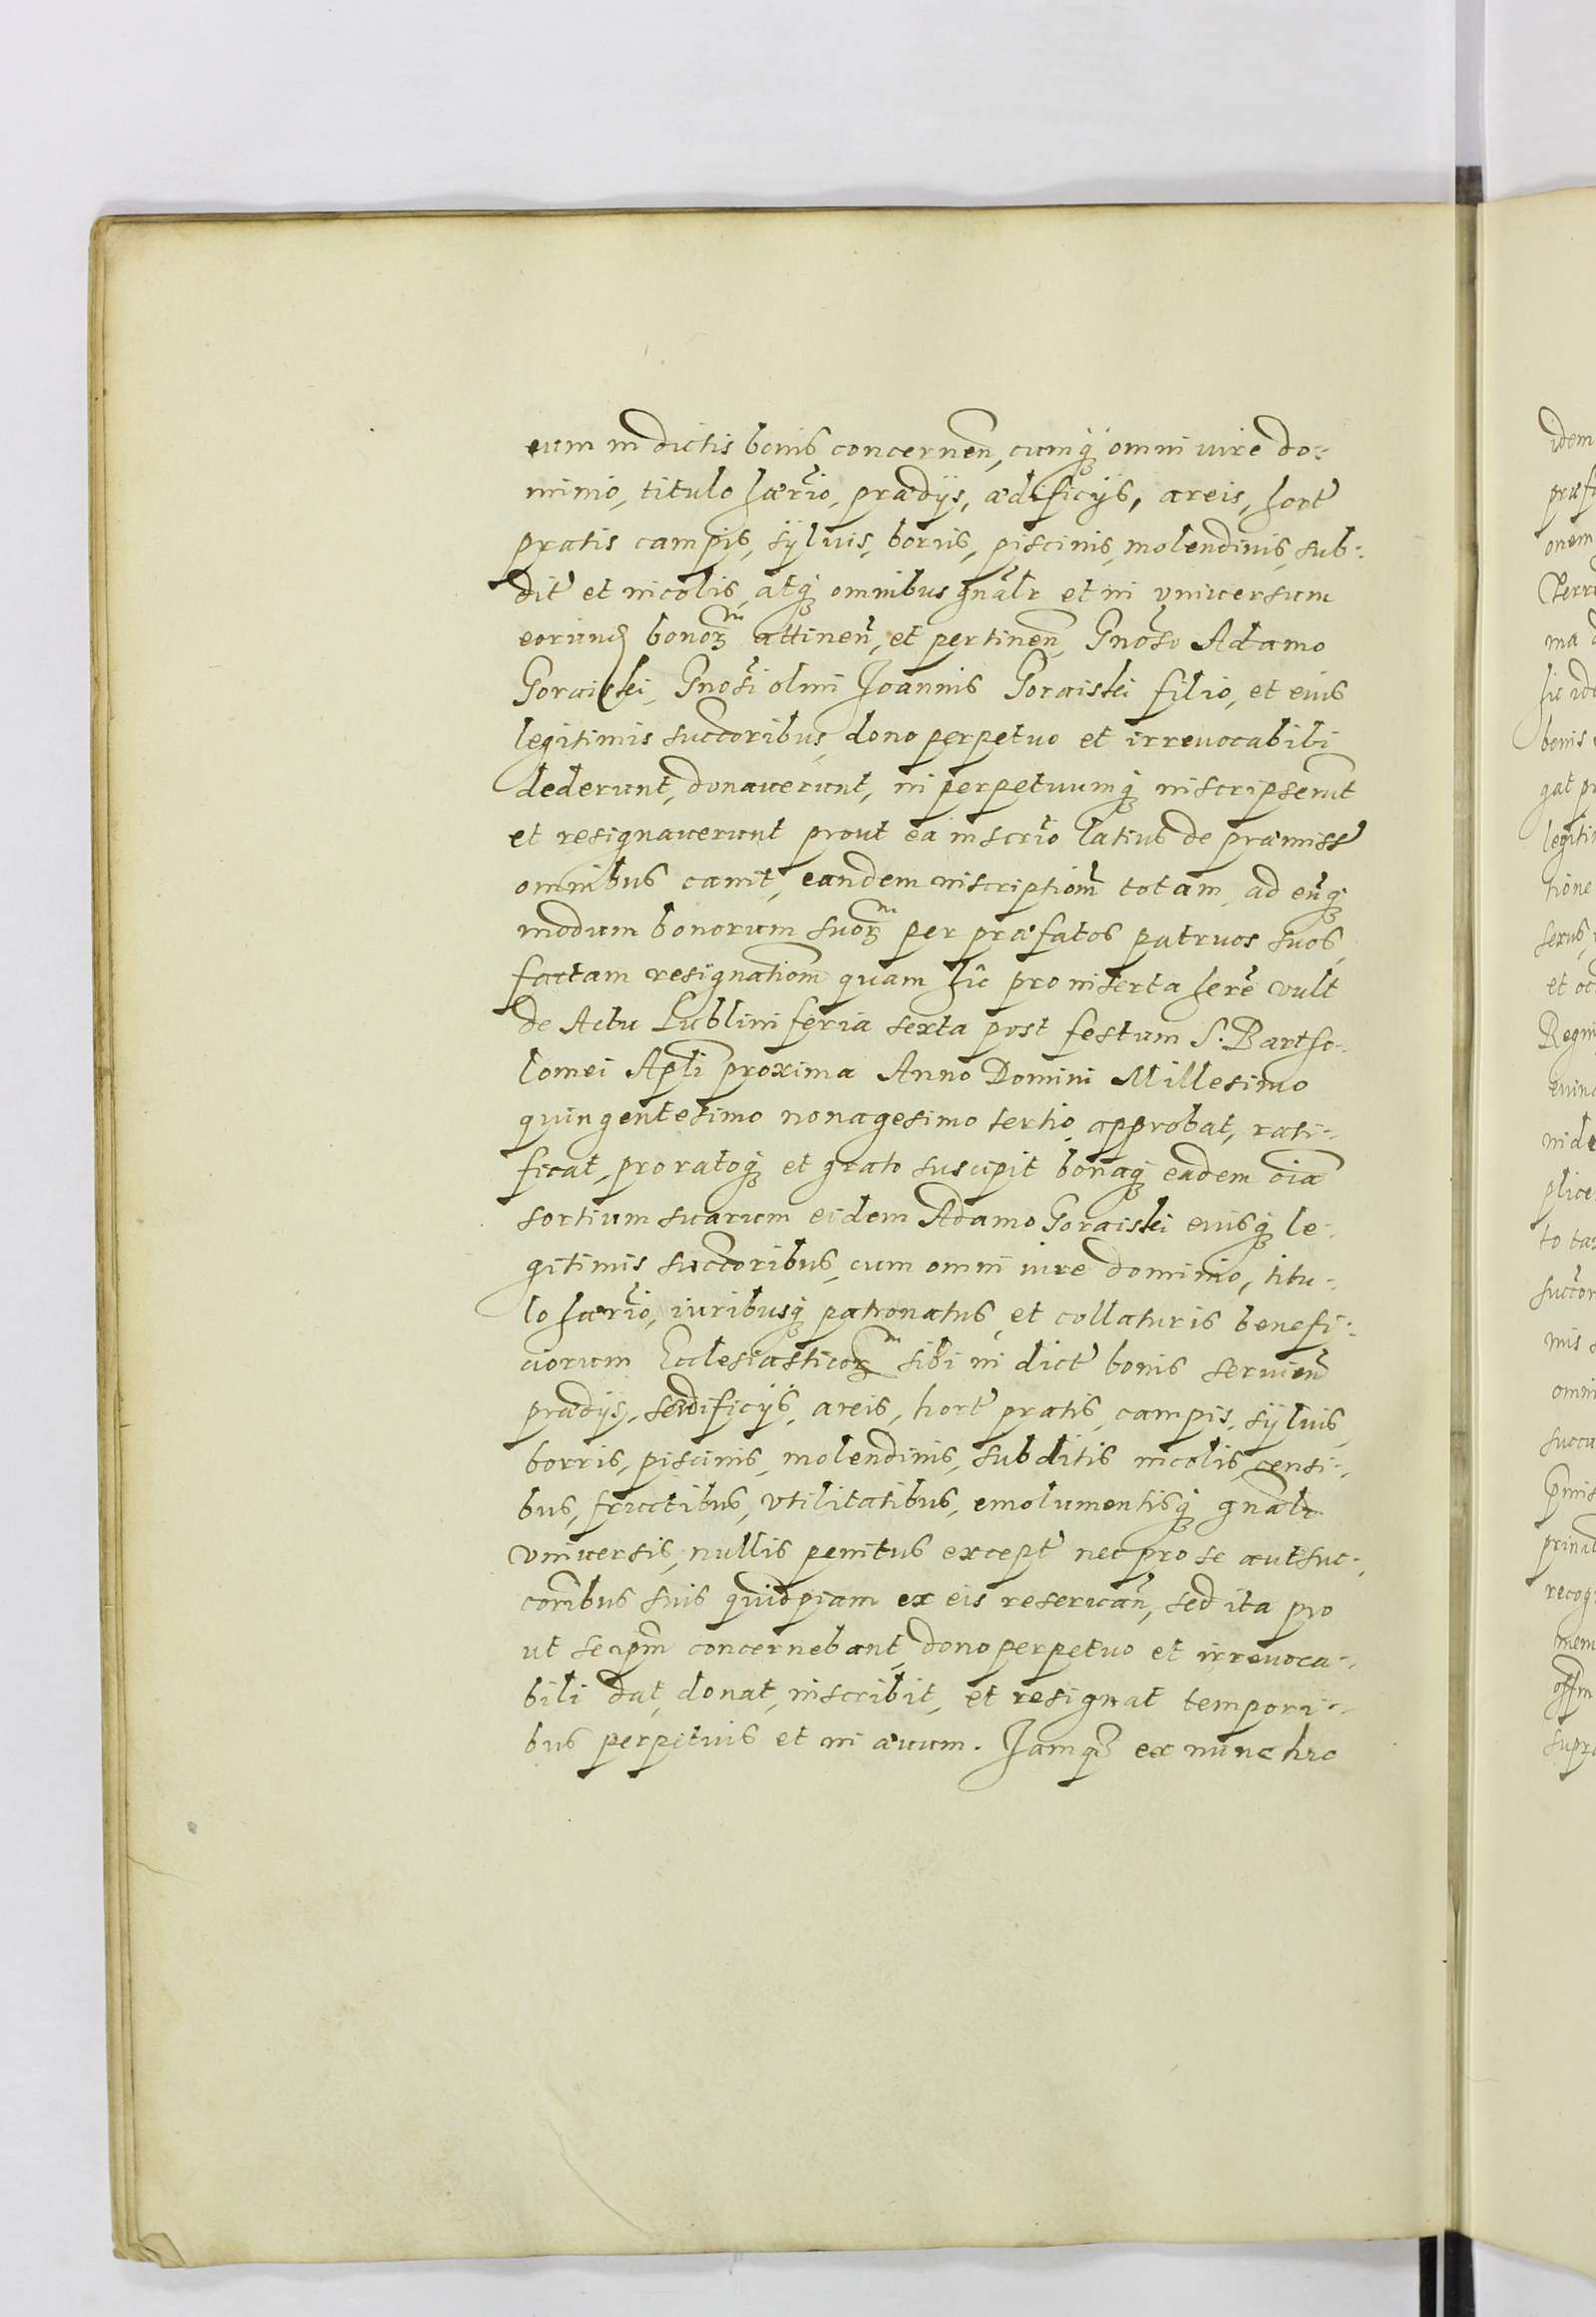 eum in dictis bonis concernen̄, cumq́ꝫ omni iure do-
minio, titulo hær̃io, prædijs, ædificijs, areis, hort̃
pratis campis, sÿluis, borris, piscinis, molendinis, sub-
dit̃ et incolis, atq́ꝫ omnibus gn̄alr et in vniuersum
eorund bonoꝝᵐ attinen̄, et pertinen̄, Gnoso Adamo
Goraiski, Gnosi olim Joannis Goraiski filio, et eius
legitimis succoribus, dono perpetuo et irreuocabili
dederunt, donauerunt, in perpetuumq́ꝫ inscripserūt
et resignauerunt prout ea inscr̃io latius de præmiss̃
omnibus canit, eandem inscriptiom̄ totam, ad eūq́ꝫ
modum bonorum suoꝝᵐ per præfatos patruos suos,
factam resignatiom̄ quam hic̄ pro inserta herẽ vult
de Actu Lublini feria sexta post festum S. Bartho-
lomei Ap̄li proxima Anno Domini Millesimo
quingentesimo nonagesimo tertio, approbat, rati-
ficat, pro ratoq́ꝫ et grato suscipit bonaq́ꝫ eadem oīa
sortium suarum eidem Adamo Goraiski eiusq́ꝫ le-
gitimis succoribus, cum omni iure dominio, titu-
lo hær̃io, iuribusq́ꝫ patronatus, et collaturis benefi-
ciorum Ecclesiasticoꝝᵐ sibi in dict̃ bonis seruien̄
prædijs, ædificijs, areis, hort̃ pratis, campis, sÿluis,
borris, piscinis, molendinis, subditis incolis, censi-
bus, fructibus, vtilitatibus, emolumentisq́ꝫ gn̄alr
vniuersis, nullis penitus except̃ nec pro se aut suc-
coribus suis quidpiam ex eis reseruan̄, sed ita pro
ut se ip̄m concernebant, dono perpetuo et irreuoca-
bili dat, donat, inscribit, et resignat tempori-
bus perpetuis et in æuum. Jamqꝫ ex nunc hic
idem
onem
ma
bonis
et oc
to ta
omni
recog
mem
supra